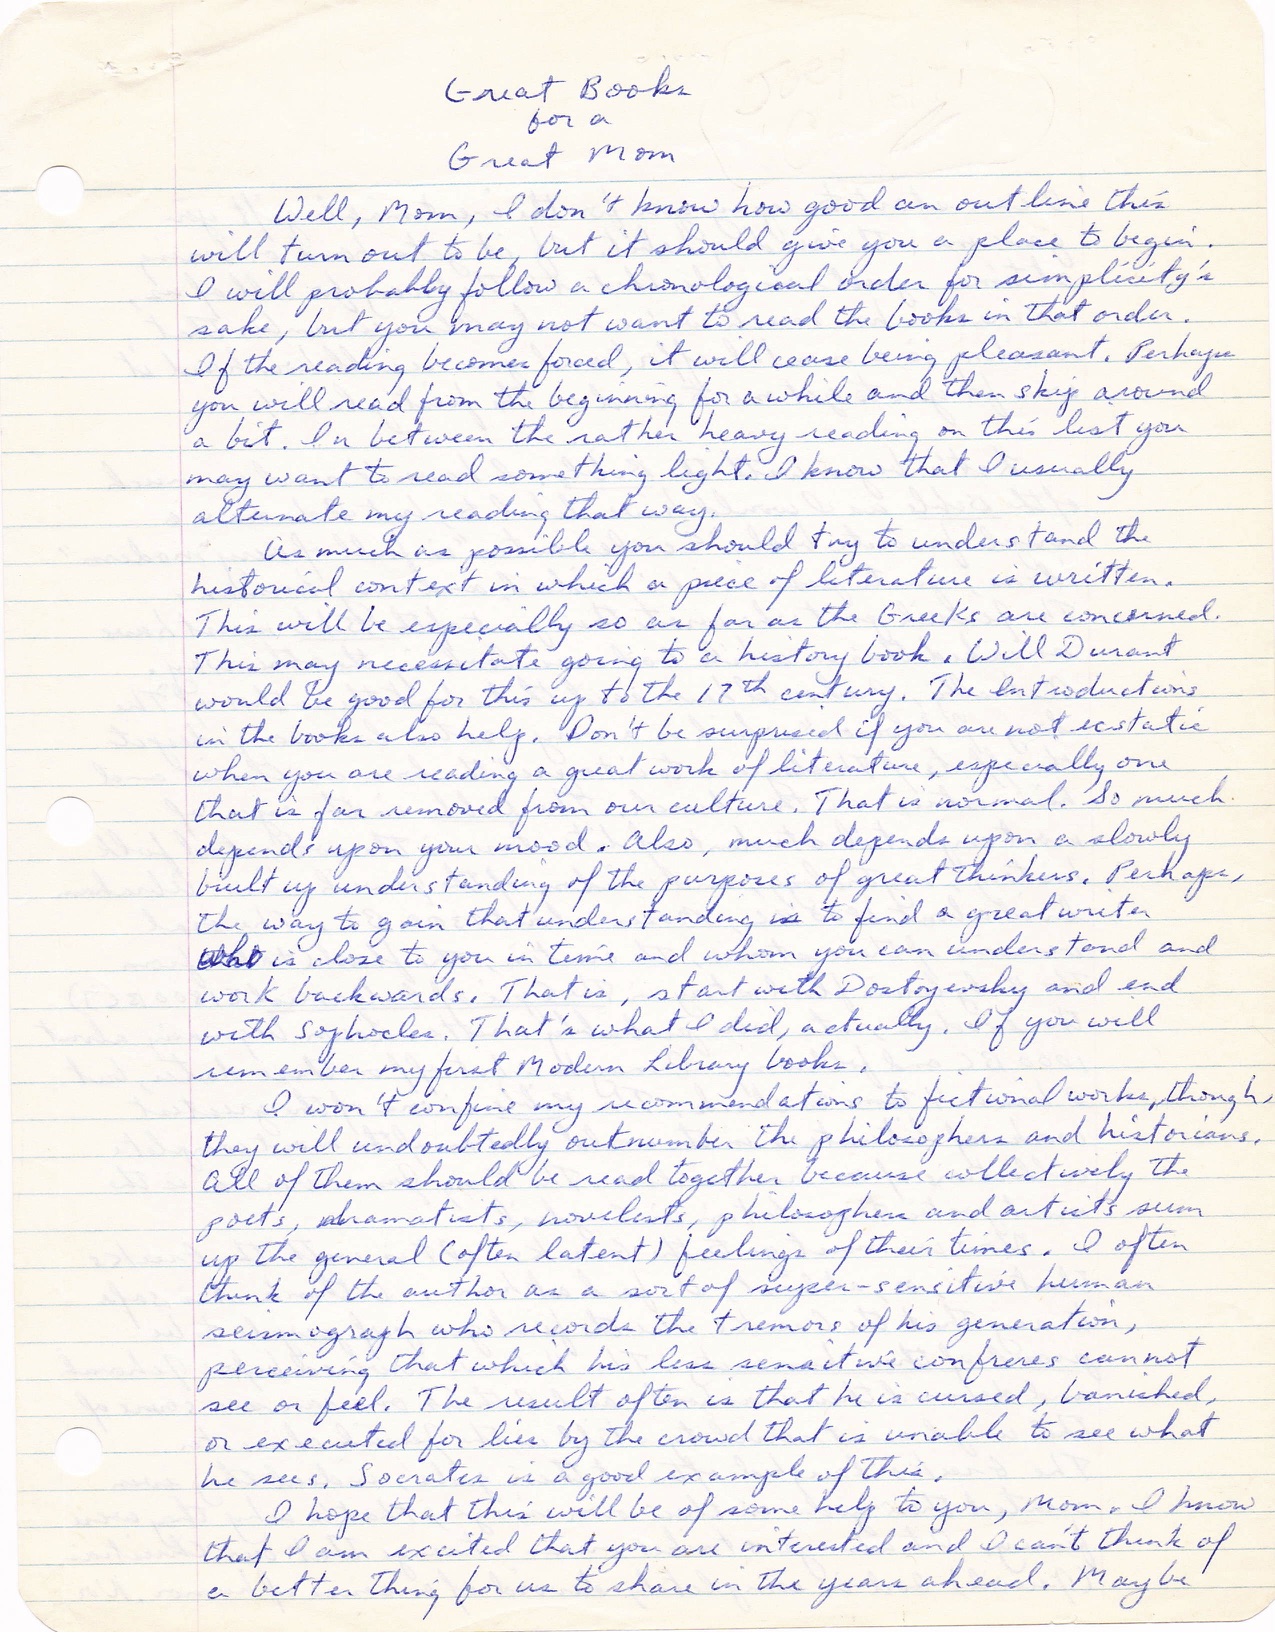 Great Books
for a
Great Mom
Well, Mom, I don't know how good an outline this
will turn out to be, but it should give you a place to begin.
I will probably follow a chronological order for simplicity's
sake, but you may not want to read the books in that order.
If the reading becomes forced, it will cease being pleasant. Perhaps
you will read from the beginning for a while and then skip around
a bit. In between the rather heavy reading on this list you
may want to read something light. I know that I usually
alternate my reading that way.
As much as possible you should try to understand the
historical context in which a piece of literature is written.
This will be especially so as far as the Greeks are concerned.
This may necessitate going to a history book. Will Durant
would be good for this up to the 17th century. The Introductions
in the books also help. Don't be surprised if you are not ecstatic
when you are reading a great work of literature, especially one
that is far removed from our culture. That is normal. So much
depends upon your mood. Also, much depends upon a slowly
built up understanding of the purposes of great thinkers. Perhaps,
the way to gain that understanding is to find a great writer
who is close to you in time and whom you can understand and
work backwards. That is, start with Dostoyevsky and end
with Sophocles. That's what I did, actually. If you will
remember my first Modern Library books.
I won't confine my recommendations to fictional works, though,
they will undoubtedly outnumber the philosophers and historians.
All of them should be read together because collectively the
poets, dramatists, novelists, philosophers and artists sum
up the general (often latent) feelings of their times. I often
think of the author as a sort of super-sensitive human
seismograph who records the tremors of his generation,
perceiving that which his less sensitive confreres cannot
see or feel. The result often is that he is cursed, banished,
or executed for lies by the crowd that is unable to see what
he sees. Socrates is a good example of this.
I hope that this will be of some help to you, Mom. I know
that I am excited that you are interested and I can't think of
a better thing for us to share in the years ahead. Maybe